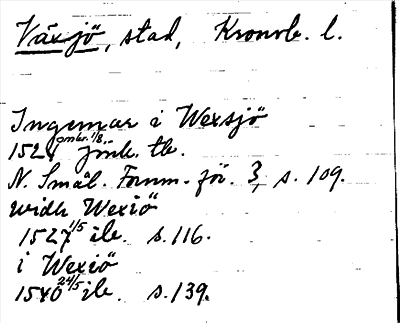 Växjö, stad, Kronob. l.
Ingemar i Wexsjö
152 omkr. 1/8 Jönk. tb.
N. Smål. Fornm.-för. 3, s. 109.
widh Wexiö
1527 1/5 ib. s. 116.
i Wexiö
1540 24/5 ib. s. 139.